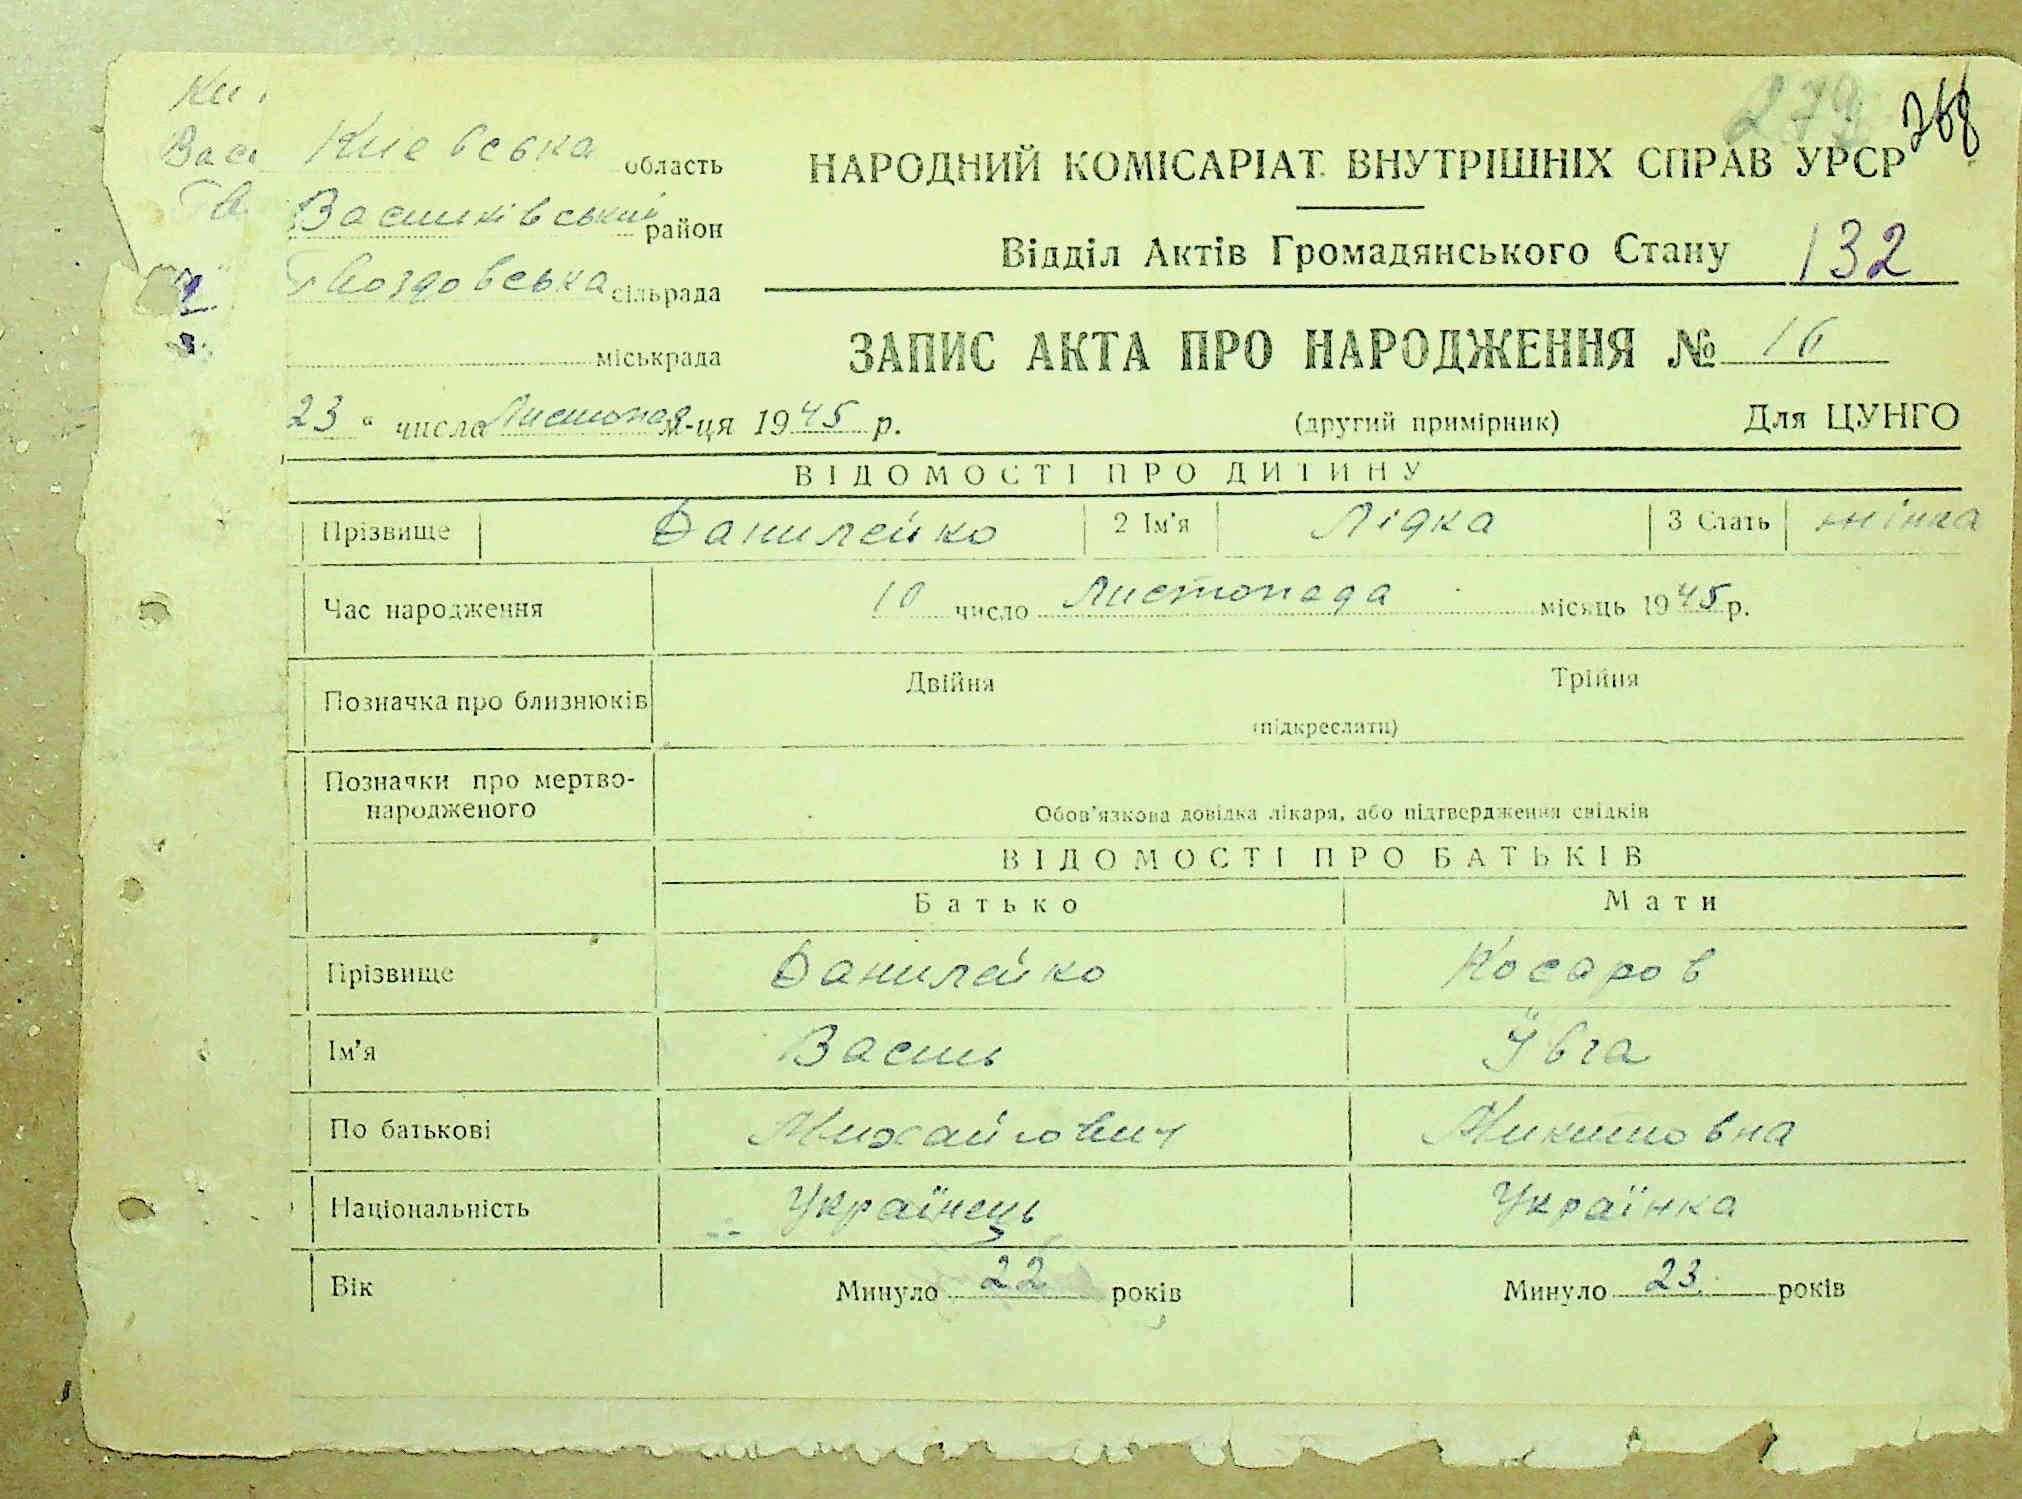 Ки
279 268
Васи
Киевська область
НАРОДНИЙ КОМІСАРІАТ ВНУТРІШНІХ СПРАВ УРСР
Васильківський район
Відділ Актів Громадянського Стану 132
Гвоздовська сільрада
міськрада
ЗАПИС АКТА ПРО НАРОДЖЕННЯ № 16
23 " числа Листопад м-ця 1945 р.
(другий примірник) Для ЦУНГО
ВІДОМОСТІ ПРО ДИТИНУ
Прізвище Данилейко 2 Ім'я Лідка 3 Стать жінка
Час народження 10 число Листопада місяць 1945 р.
Позначка про близнюків Двійня Трійня
(підкреслити)
Позначки про мертво-
народженого
Обов'язкова довідка лікаря, або підтвердження свідків
ВІДОМОСТІ ПРО БАТЬКІВ
Батько Мати
Прізвище Данилейко Косаров
Ім'я Василь Ївга
По батькові Михайлович Микитовна
Національність Українець Українка
Вік Минуло 22 років Минуло 23 років